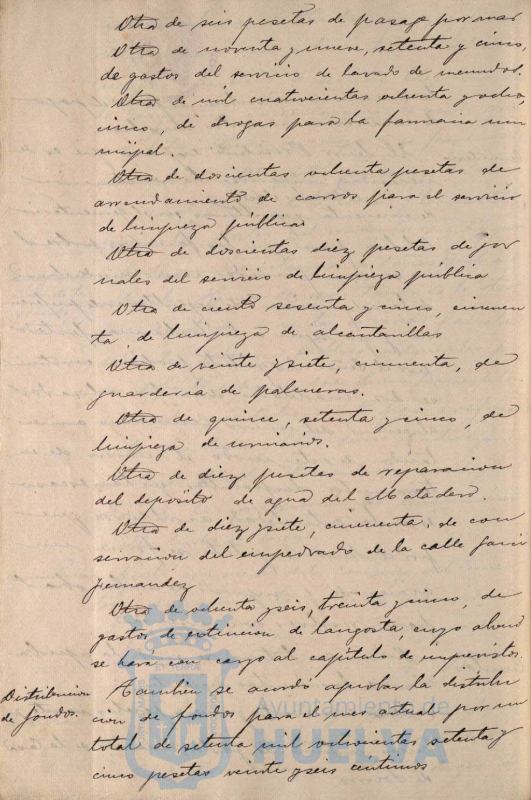 Otra de seis pesetas de pasage por mar
Otra de noventa y nueve, setenta y cinco,
de gastos del servicio de lavado de menudos.
Otra de mil cuatrocientas ochenta y ocho,
cinco, de drogas para la farmacia mu
nicipal.
Otra de doscientas ochenta pesetas de
arrendamiento de carros para el servicio
de limpieza pública
Otra de doscientas diez pesetas de jor
nales del servicio de limpieza pública
Otra de ciento sesenta y cinco, cincuen
ta, de limpieza de alcantarillas
Otra de veinte y siete, cincuenta, de
guardería de palmeras.
Otra de quince, setenta y cinco, de
limpieza de urinarios.
Otra de diez pesetas de reparacion
del depósito de agua del Matadero.
Otra de diez y siete, cincuenta, de con
servacion del empedrado de la calle
Fernandez
Otra de ochenta y seis, treinta y cinco, de
gastos de extincion de langosta, cuyo abono
se hara con cargo al capítulo de imprevistos.
Distribucion
de fondos.
Tambien se acordó aprobar la distribu
cion de fondos para el mes actual por un
total de setenta mil ochocientas setenta y
cinco pesetas veinte y seis centimos
Ayuntamiento de
HUELVA